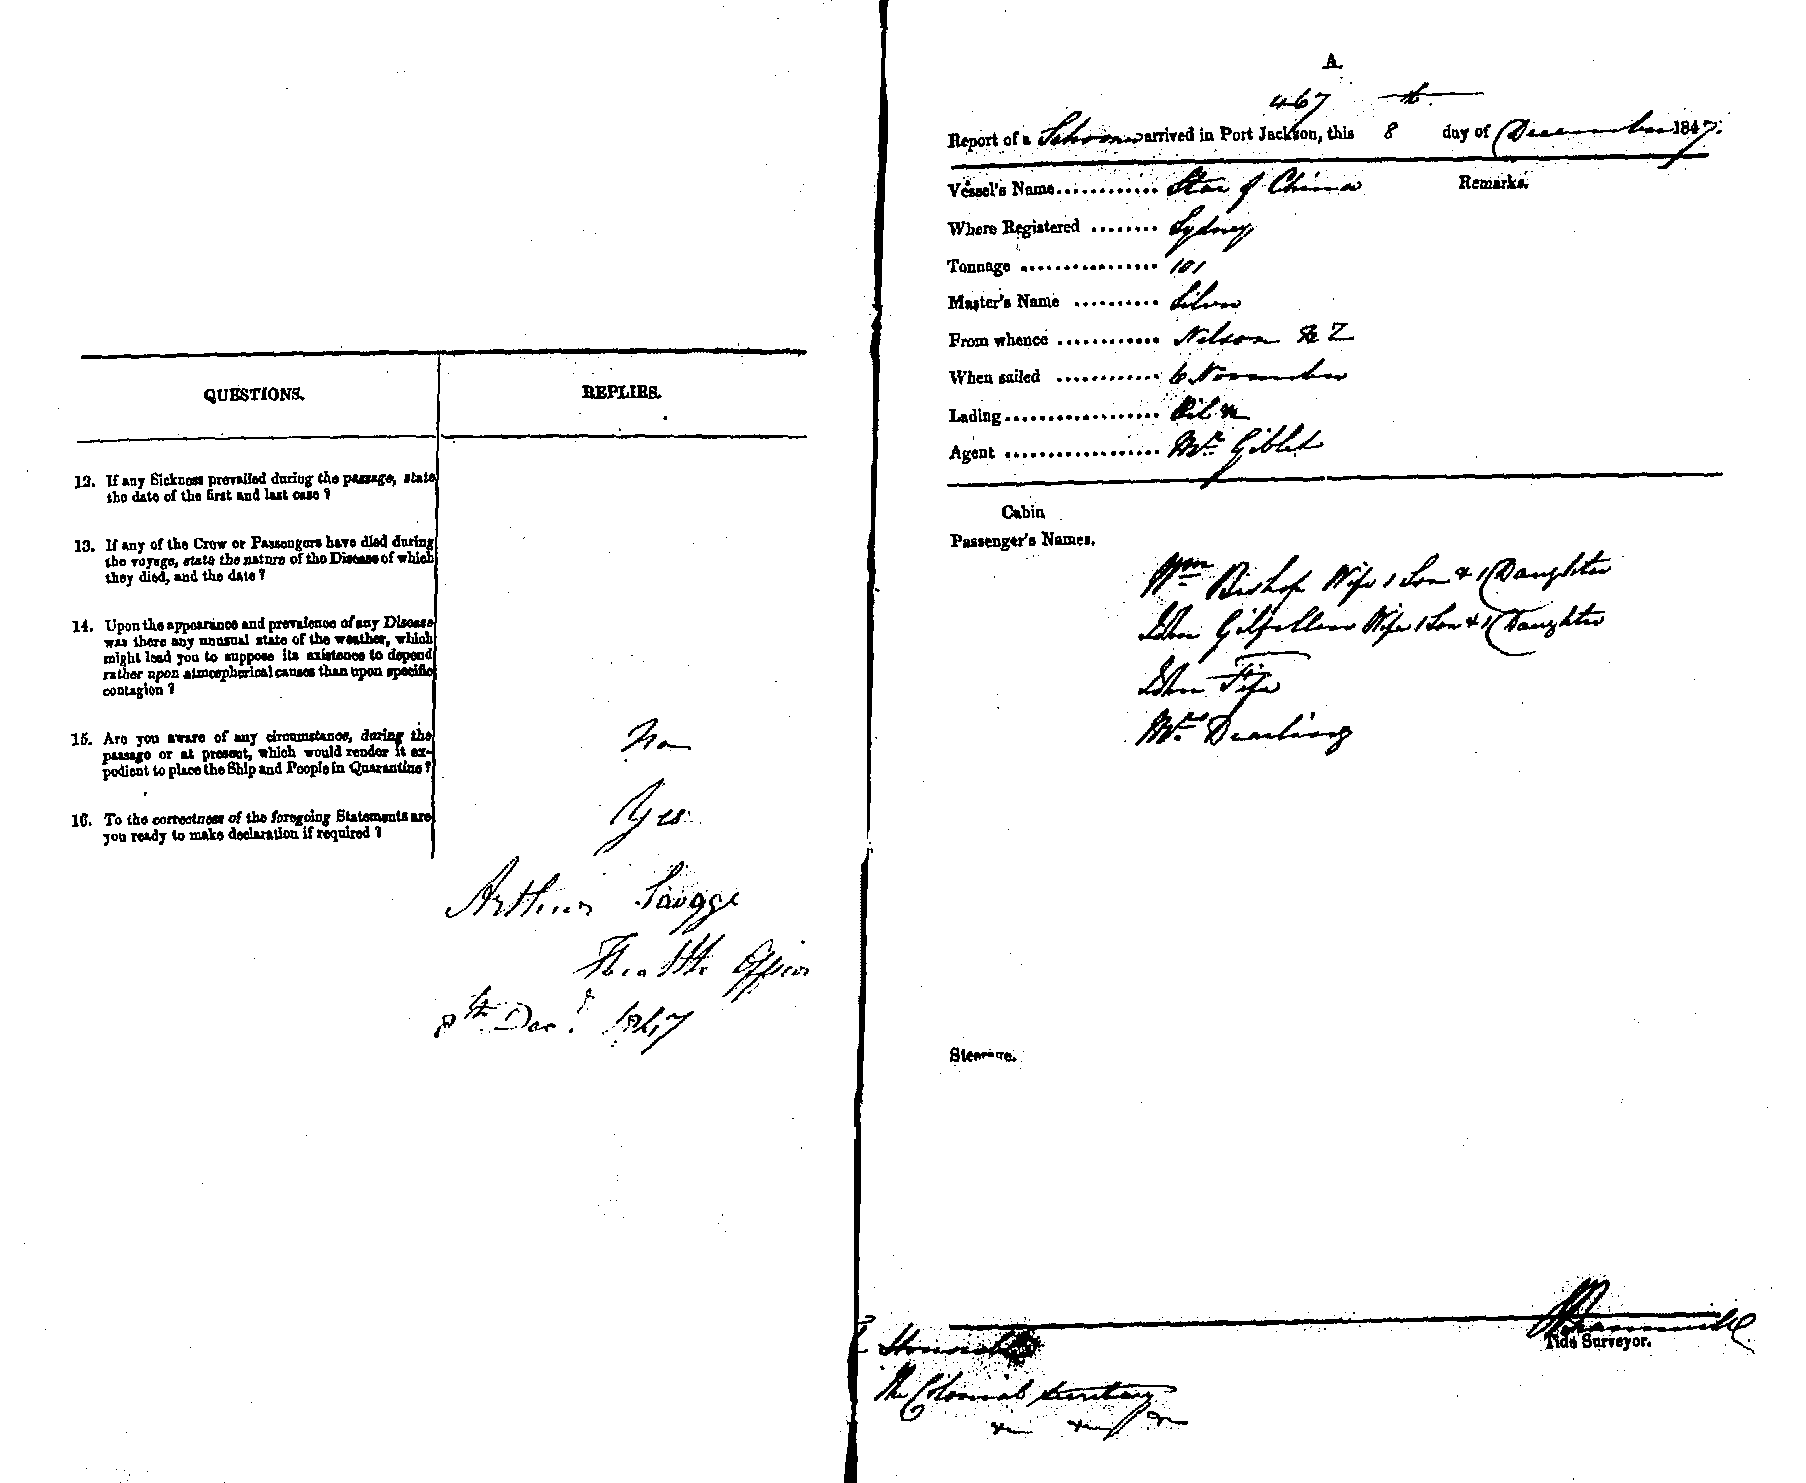 QUESTIONS.
REPLIES.
12. If any Sickness prevailed during the passage, state
the date of the first and last case ?
13. If any of the Crew or Passengers have died during
the voyage, state the nature of the Disease of which
they died, and the date ?
14. Upon the appearance and prevalence of any Disease
was there any unusual state of the weather, which
might lead you to suppose its existence to depend
rather upon atmospherical causes than upon specific
contagion ?
15. Are you aware of any circumstance, during the
passage or at present, which would render it ex-
pedient to place the Ship and People in Quarantine ?
No
16. To the correctness of the foregoing Statements are
you ready to make declaration if required ?
Yes
Arthur Savage
Health Officer
8th Decr 1847
A.
467
Report of a Schooner arrived in Port Jackson, this 8 day of December 1847.
Vessel's Name............ Star of China
Remarks.
Where Registered ........ Sydney
Tonnage ................. 101
Master's Name ..........
From whence ............ Nelson NZ
When sailed ............ 6 November
Lading................... Oil &c
Agent .................... Mr Giblet
Cabin
Passenger's Names.
Wm Bishop Wife 1 Son & 1 Daughter
John Gilfillan Wife 1 Son & 1 Daughter
John Fife
Dearling
Steerage.
Tide Surveyor.
Honorable
The Colonial Secretary
&c &c &c